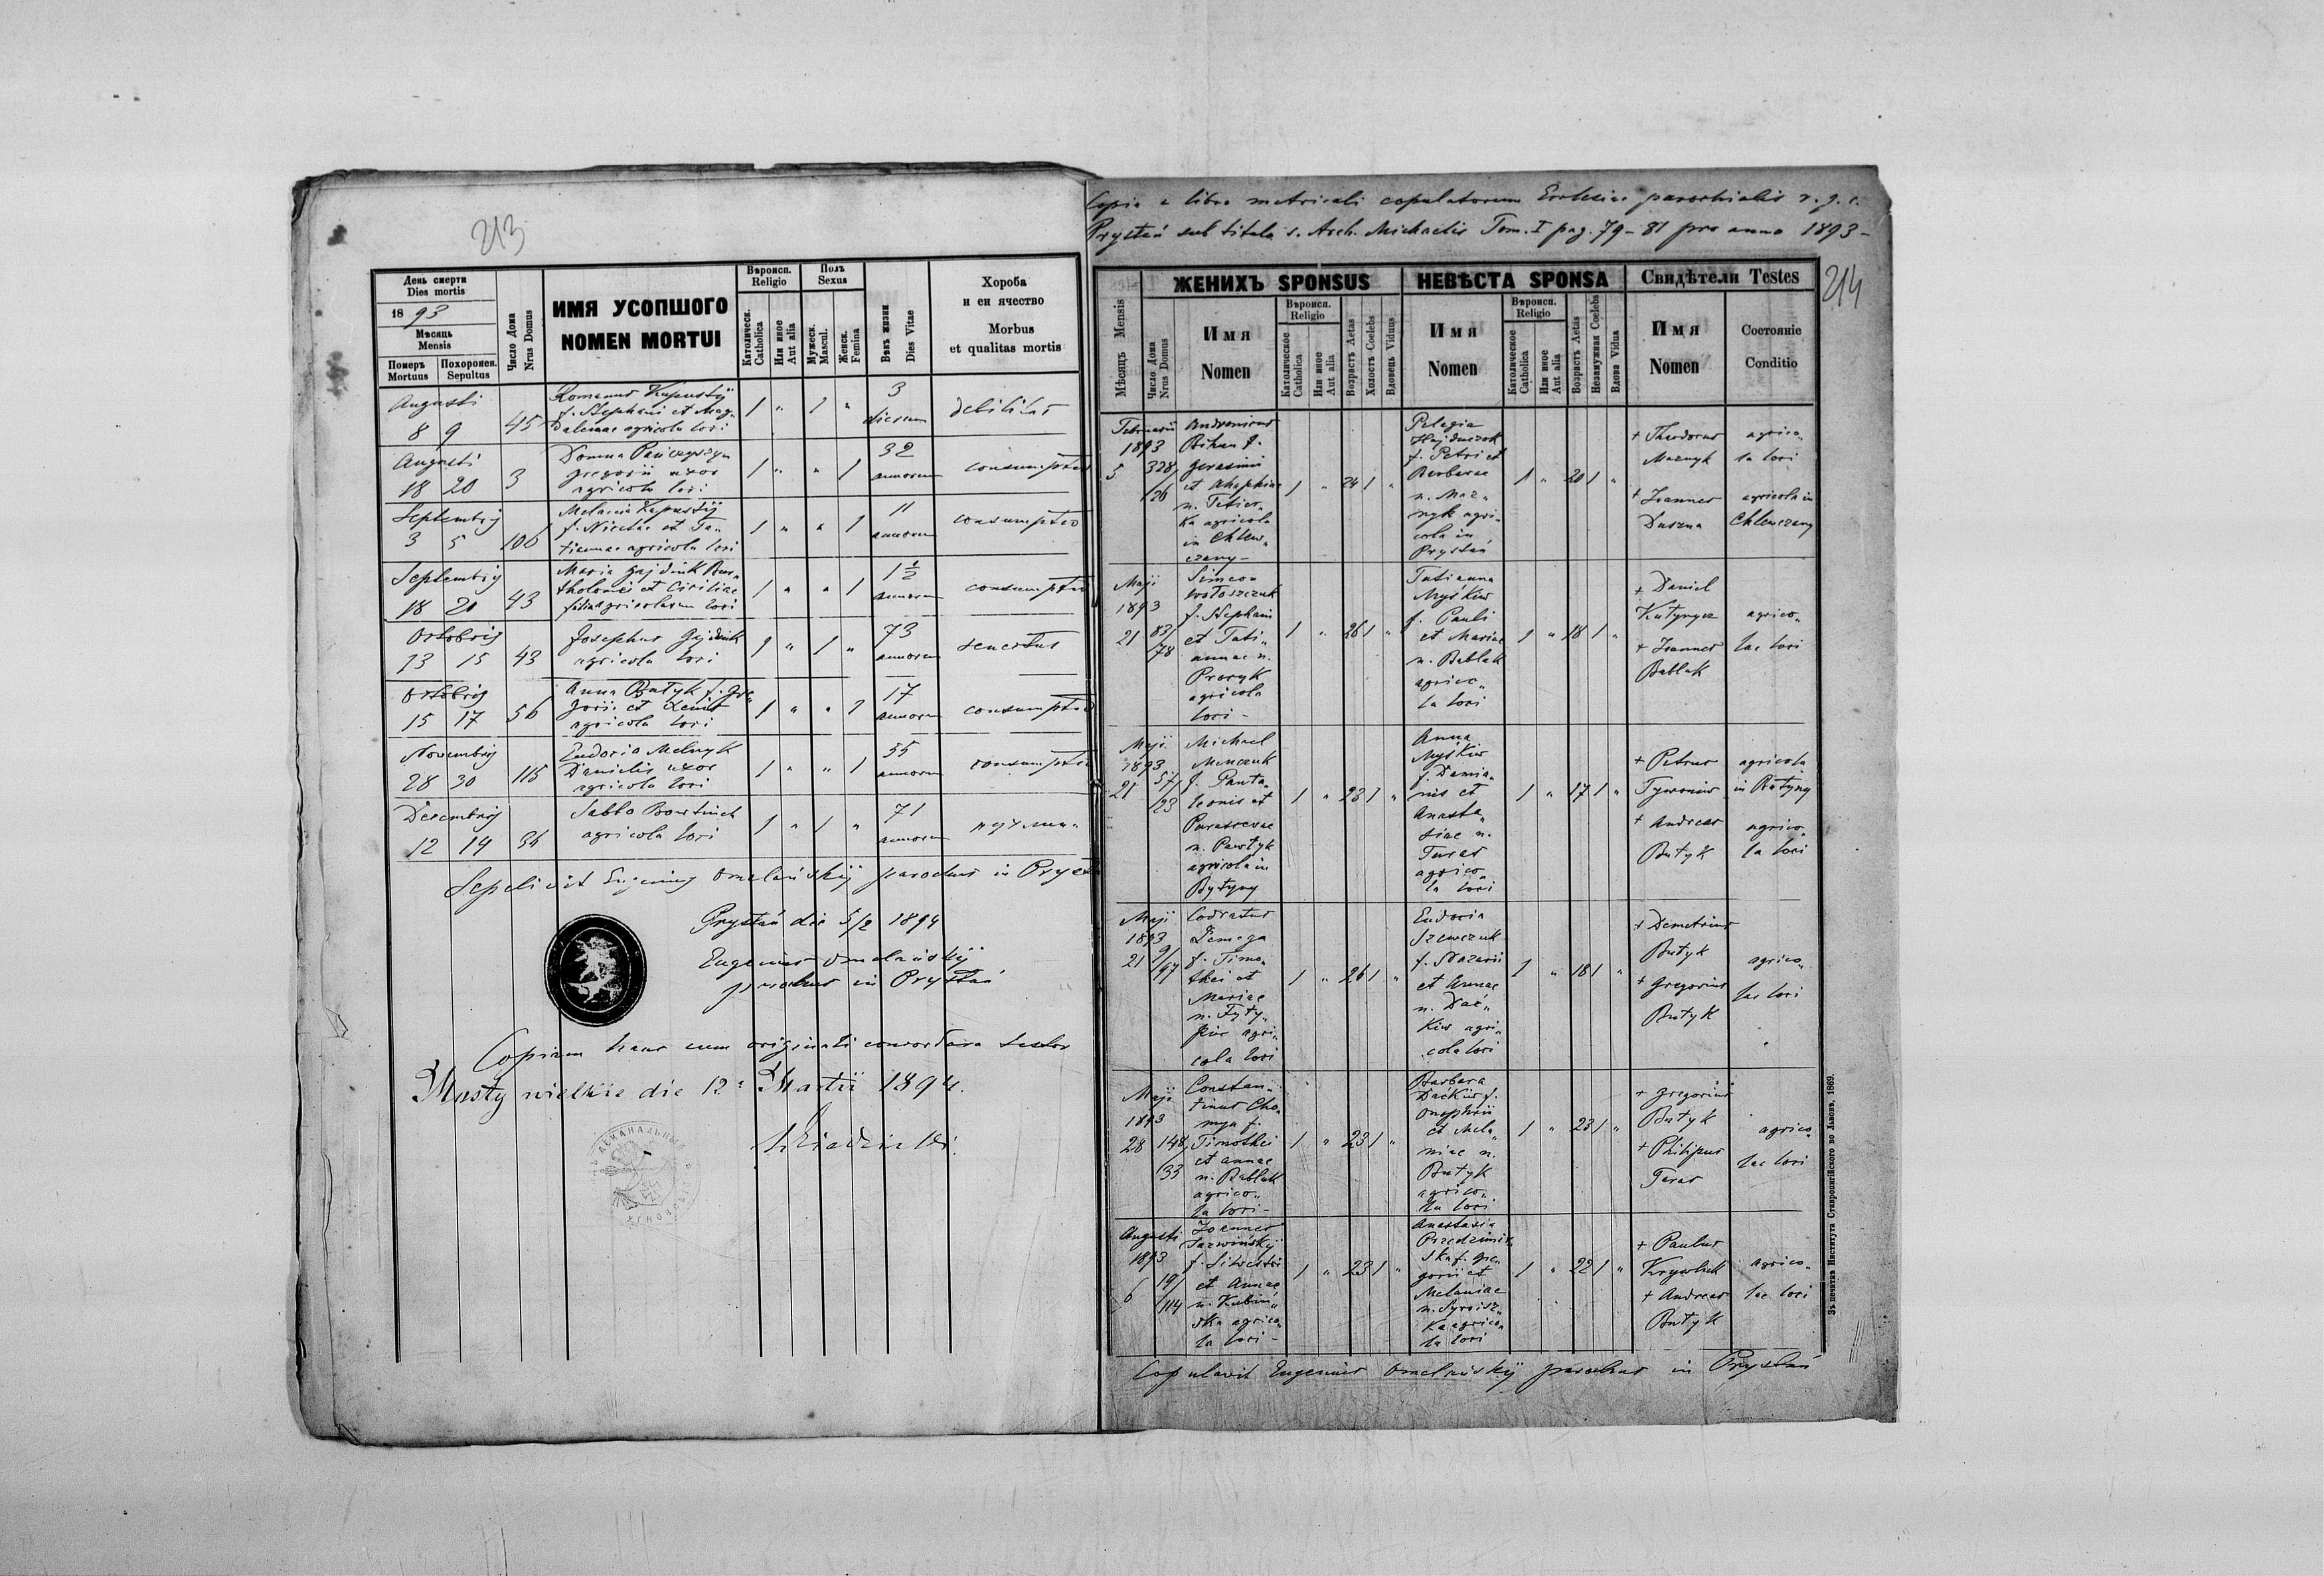 213
День смерти
Dies mortis
1893
Мѣсяць
Mensis
Померъ
Mortuus
Похоронен.
Sepultus
Число Дома
Nrus Domus
ИМЯ УСОПШОГО
NOMEN MORTUI
Вѣроисп.
Religio
Католическ.
Catholica
Или иное
Aut alia
Полъ
Sexus
Мужеск.
Mascul.
Женск.
Femina
Вѣкъ жизни
Dies Vitae
Хороба
и еи ячество
Morbus
et qualitas mortis
Augusti
8 9 45
Romanus Kapustij
f. Stephani et Mag„
dalenae agricola loci
1 " 1 "
3
dierum
debilitas
Augusti
18 20 3
Domna
Gregorii uxor
agricola loci
1 " " 1
32
annorum
consumptio
Septembris
3 5 106
Melania Kapustij
f. Nicetae et Ta„
tiannae agricola loci
1 " " 1
11
annorum
consumptio
Septembris
18 20 43
Maria Gajdiuk Bar„
tholomei et Ciriliae
filia agricolarum loci
1 " " 1
1 1/2
annorum
consumptio
Octobris
13 15 43
Josephus Gajdiuk
agricola loci
1 " 1 "
73
annorum
senectus
Octobris
15 17 56
Anna Butyk f. Gre„
gorii et
agricola loci
1 " " 1
17
annorum
consumptio
Novembris
28 30 115
Eudocia Melnyk
Danielis uxor
agricola loci
1 " " 1
55
annorum
consumptio
Decembris
12 14 36
Sabba
agricola loci
1 " 1 "
71
annorum
Sepelivit Eugenius Omelańskij parochus in Prystań
Prystań die 5/2 1894
Eugenius Omelańskij
parochus in Prystań
Copiam hanc cum originali concordare testor
Mosty wielkie die 12a Martii 1894.
Copia e libro metricali copulatorum Ecclesiae parochialis r. g. c.
Prystań sub titulo s. Arch. Michaelis Tom. I pag. 79-81 pro anno 1893-
214
Мѣсяць Mensis
Число Дома
Nrus Domus
ЖЕНИХЪ SPONSUS
Имя
Nomen
Вѣроисп.
Religio
Католическое
Catholica
Или иное
Aut alia
Возрастъ Aetas
Холостъ Coelebs
Вдовець Viduus
НЕВѢСТА SPONSA
Имя
Nomen
Вѣроисп.
Religio
Католическое
Catholica
Или иное
Aut alia
Возрастъ Aetas
Незамужная Coelebs
Вдова Vidua
Свидѣтели Testes
Имя
Nomen
Состояніе
Conditio
Februarii
1893
5
328/
/26
Andronicus
Bihun f.
Gerasimi
et Ahaphiae
n.
ka agricola
in Chlew„
czany-
1 " 24 1 "
Pelagia
Hajduczok
f. Petri et
Barbarae
n. Maz„
nyk agri„
cola in
Prystań
1 " 20 1 "
+ Theodorus
Maznyk
+ Joannes
Duszna
agrico„
la loci
agricola in
Chlewczany
Maji
1893
21
83/
/78
Simeon
Wołoszczuk
f. Stephani
et Tati„
annae n.
Procyk
agricola
loci -
1 " 26 1 "
Tatianna
Myśkiw
f. Pauli
et Mariae
n. Bablak
agrico„
la loci
1 " 18 1 "
+ Daniel
+ Joannes
Bablak
agrico„
lae loci
Maji
1893
21
57/
/23
Michael
f. Panta„
leonis et
Parascevae
n. Pawłyk
agricola in
Bytyny
1 " 23 1 "
Anna
Myśkiw
f. Damia„
nis et
Anasta„
siae n.
Taras
agrico„
la loci
1 " 17 1 "
+ Petrus
+ Andreas
Butyk
agricola
in Butyny
agrico„
la loci
Maji
1893
21
9/
/97
Codratus
f. Timo„
thei et
Mariae
n. Fyty„
agri„
cola loci
1 " 26 1 "
Eudocia
Szewczuk
f. Nazarii
et Annae
n. Dać„
kiw agri„
cola loci
1 " 18 1 "
+ Demetrius
Butyk
+ Gregorius
Butyk
agrico„
lae loci
Maji
1893
28
148/
/33
Constan„
tinus Cho„
myn f.
Timothei
et Annae
n. Bablak
agrico„
la loci -
1 " 23 1 "
Barbara
Daćkiw f.
Onuphrii
et Mela„
niae n.
Butyk
agrico„
la loci
1 " 23 1 "
+ Gregorius
Butyk
+ Philipus
Taras
agrico„
lae loci
Augusti
1893
6
19/
/114
Joannes
f. Silvestri
et Annae
n. Kubiń„
ska agrico„
la loci -
1 " 23 1 "
Anastasia
Przedzimir„
ska f. Gre„
gorii et
Melaniae
ka agrico„
la loci
1 " 22 1 "
+ Paulus
+ Andreas
Butyk
agrico„
lae loci
Copulavit Eugenius Omelański parochus in Prystań
Зъ печатнѣ Института Ставропигійского во Львовѣ, 1869.